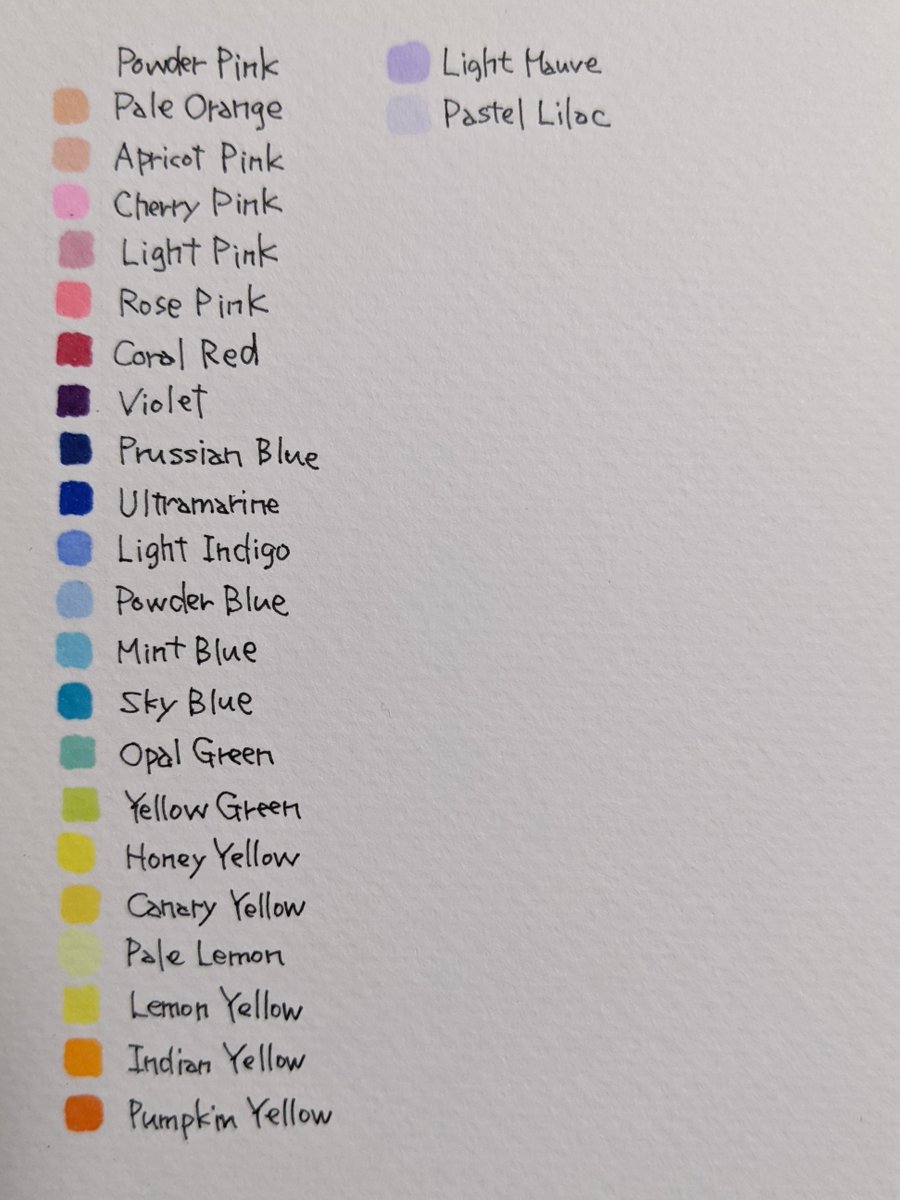 Powder Pink
Pale Orange
Apricot Pink
Cherry Pink
Light Pink
Rose Pink
Coral Red
Violet
Prussian Blue
Ultramarine
Light Indigo
Powder Blue
Mint Blue
Sky Blue
Opal Green
Yellow Green
Honey Yellow
Canary Yellow
Pale Lemon
Lemon Yellow
Indian Yellow
Pumpkin Yellow
Light Mauve
Pastel Lilac